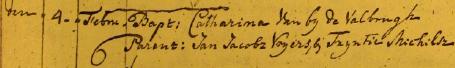 4 - Febru. Bapt: Catharina Van by de Valbrugh
Parent: Jan Jacobz Voyers, bij Tryntie Michilsz